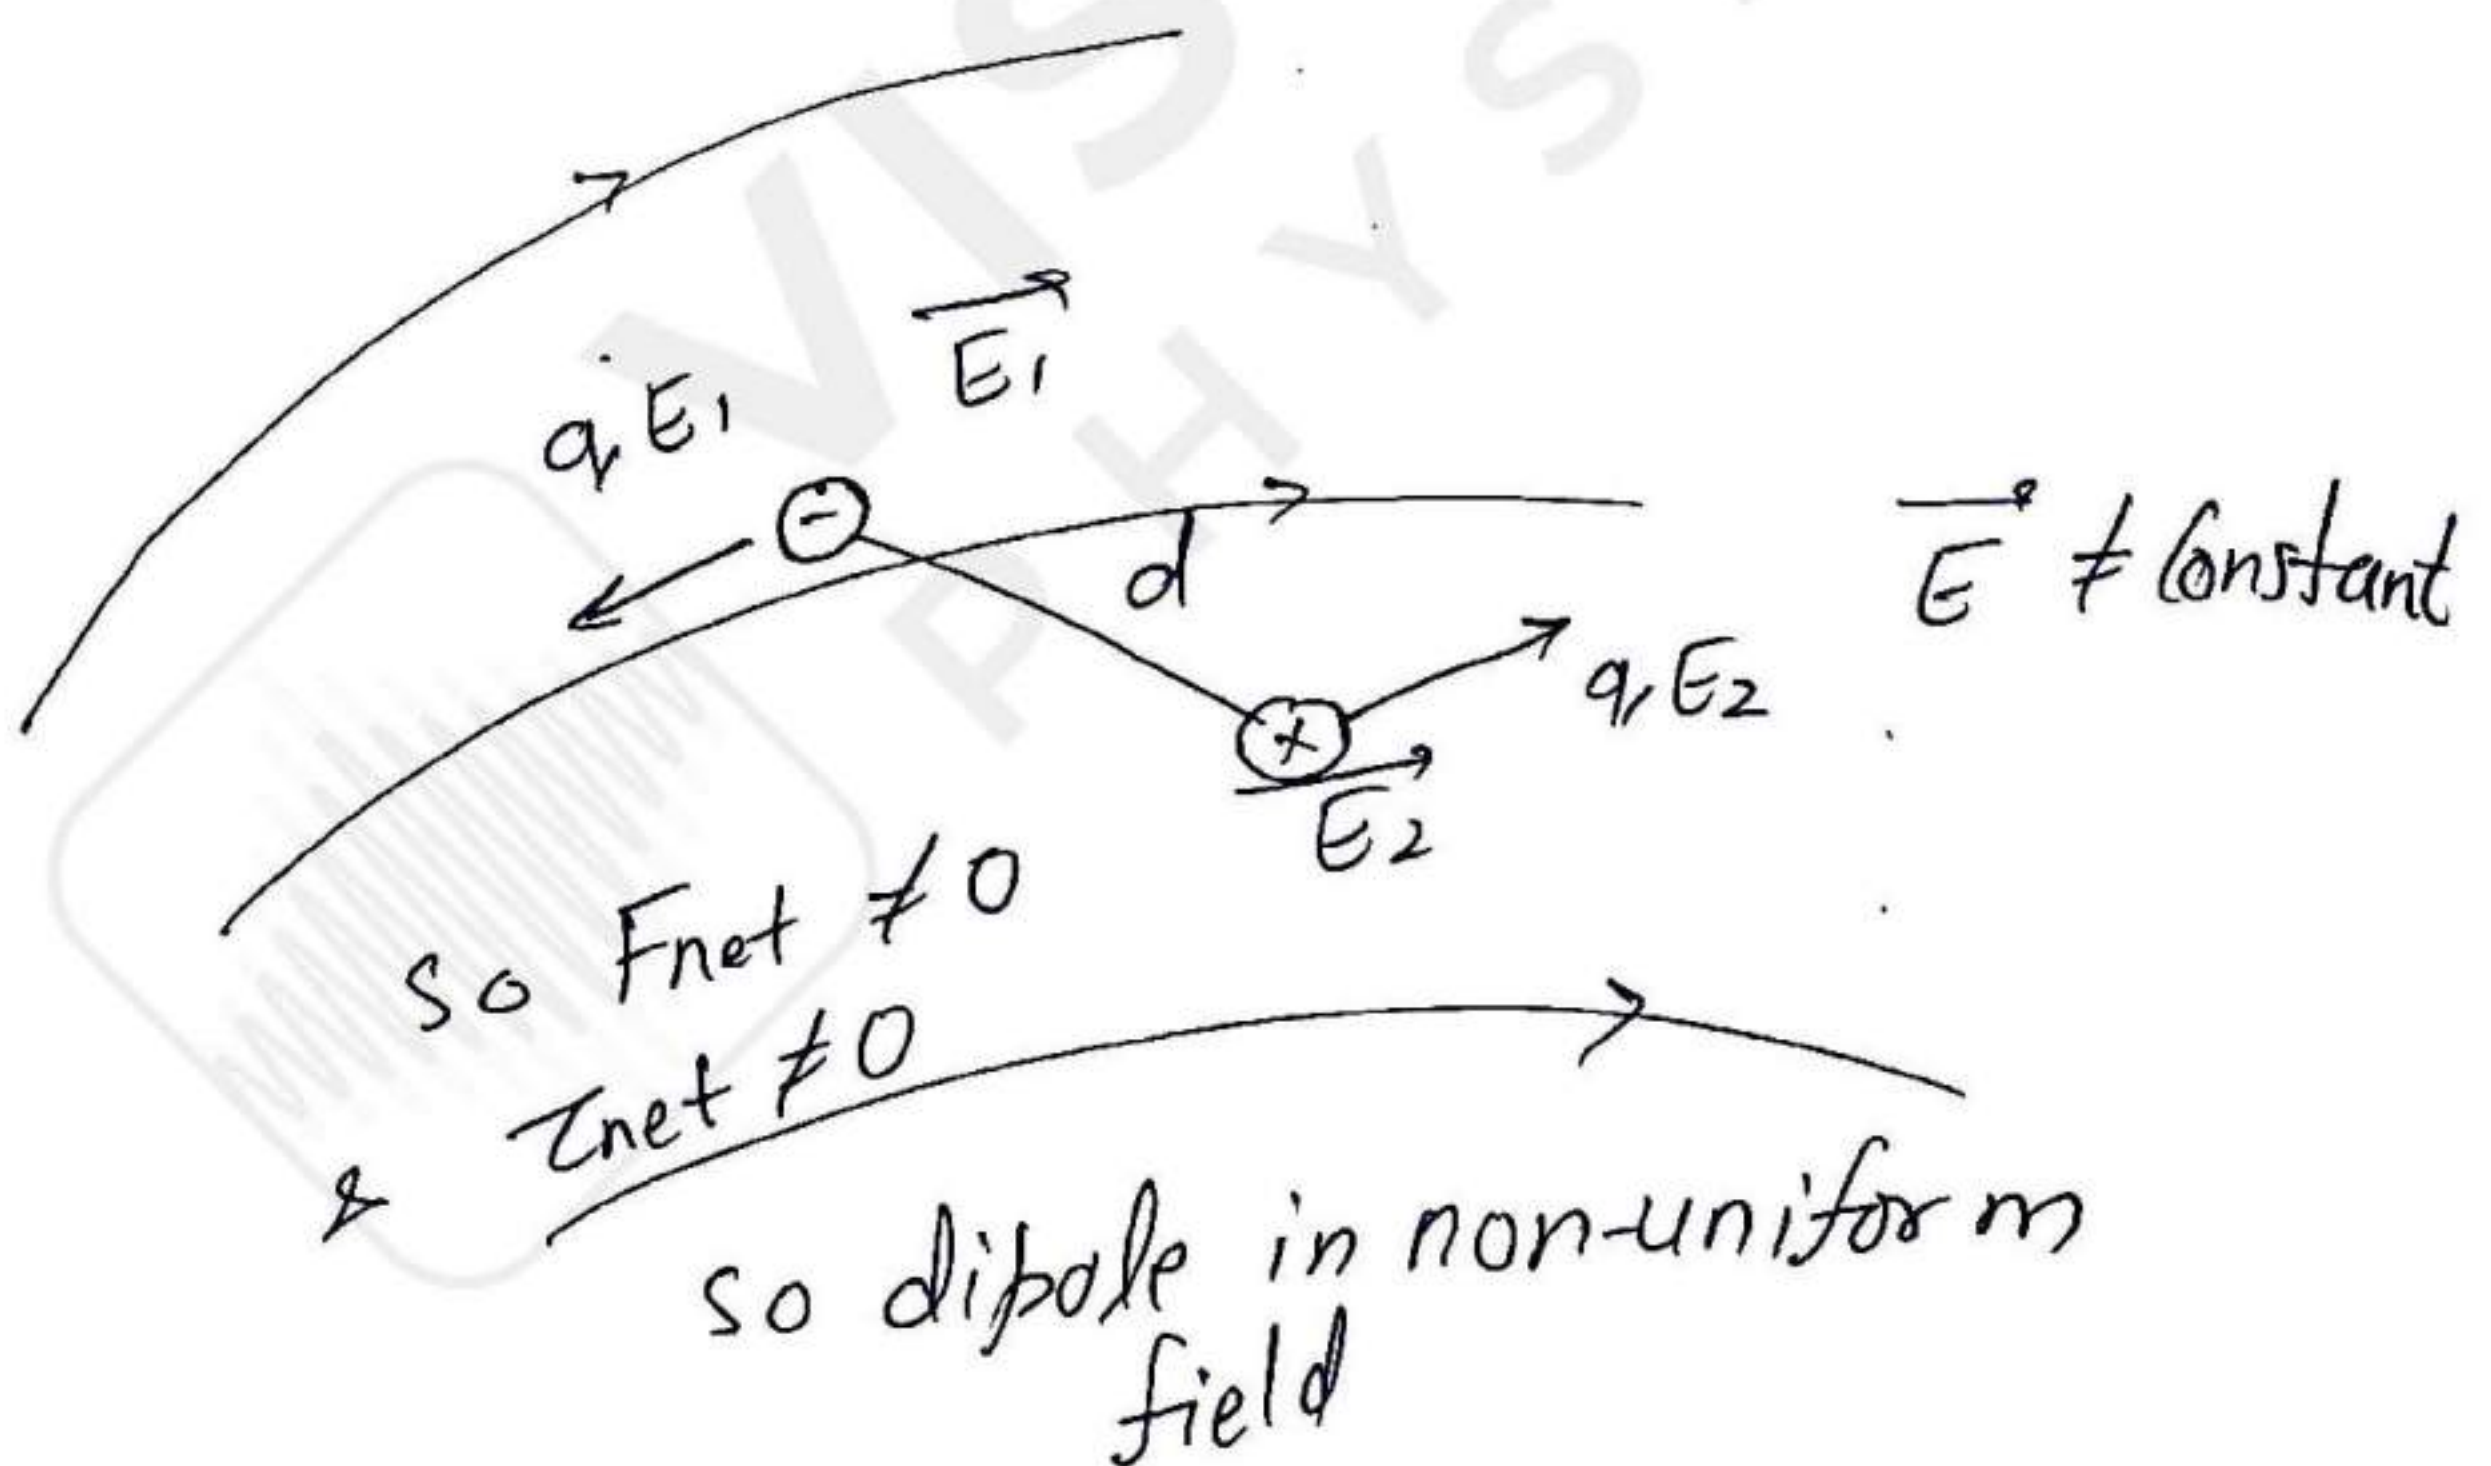 E₁
qE₁
d
E ≠ Constant
qE₂
E₂
So Fnet ≠ 0
& τnet ≠ 0
so dipole in non-uniform
field
VIS
PHYS